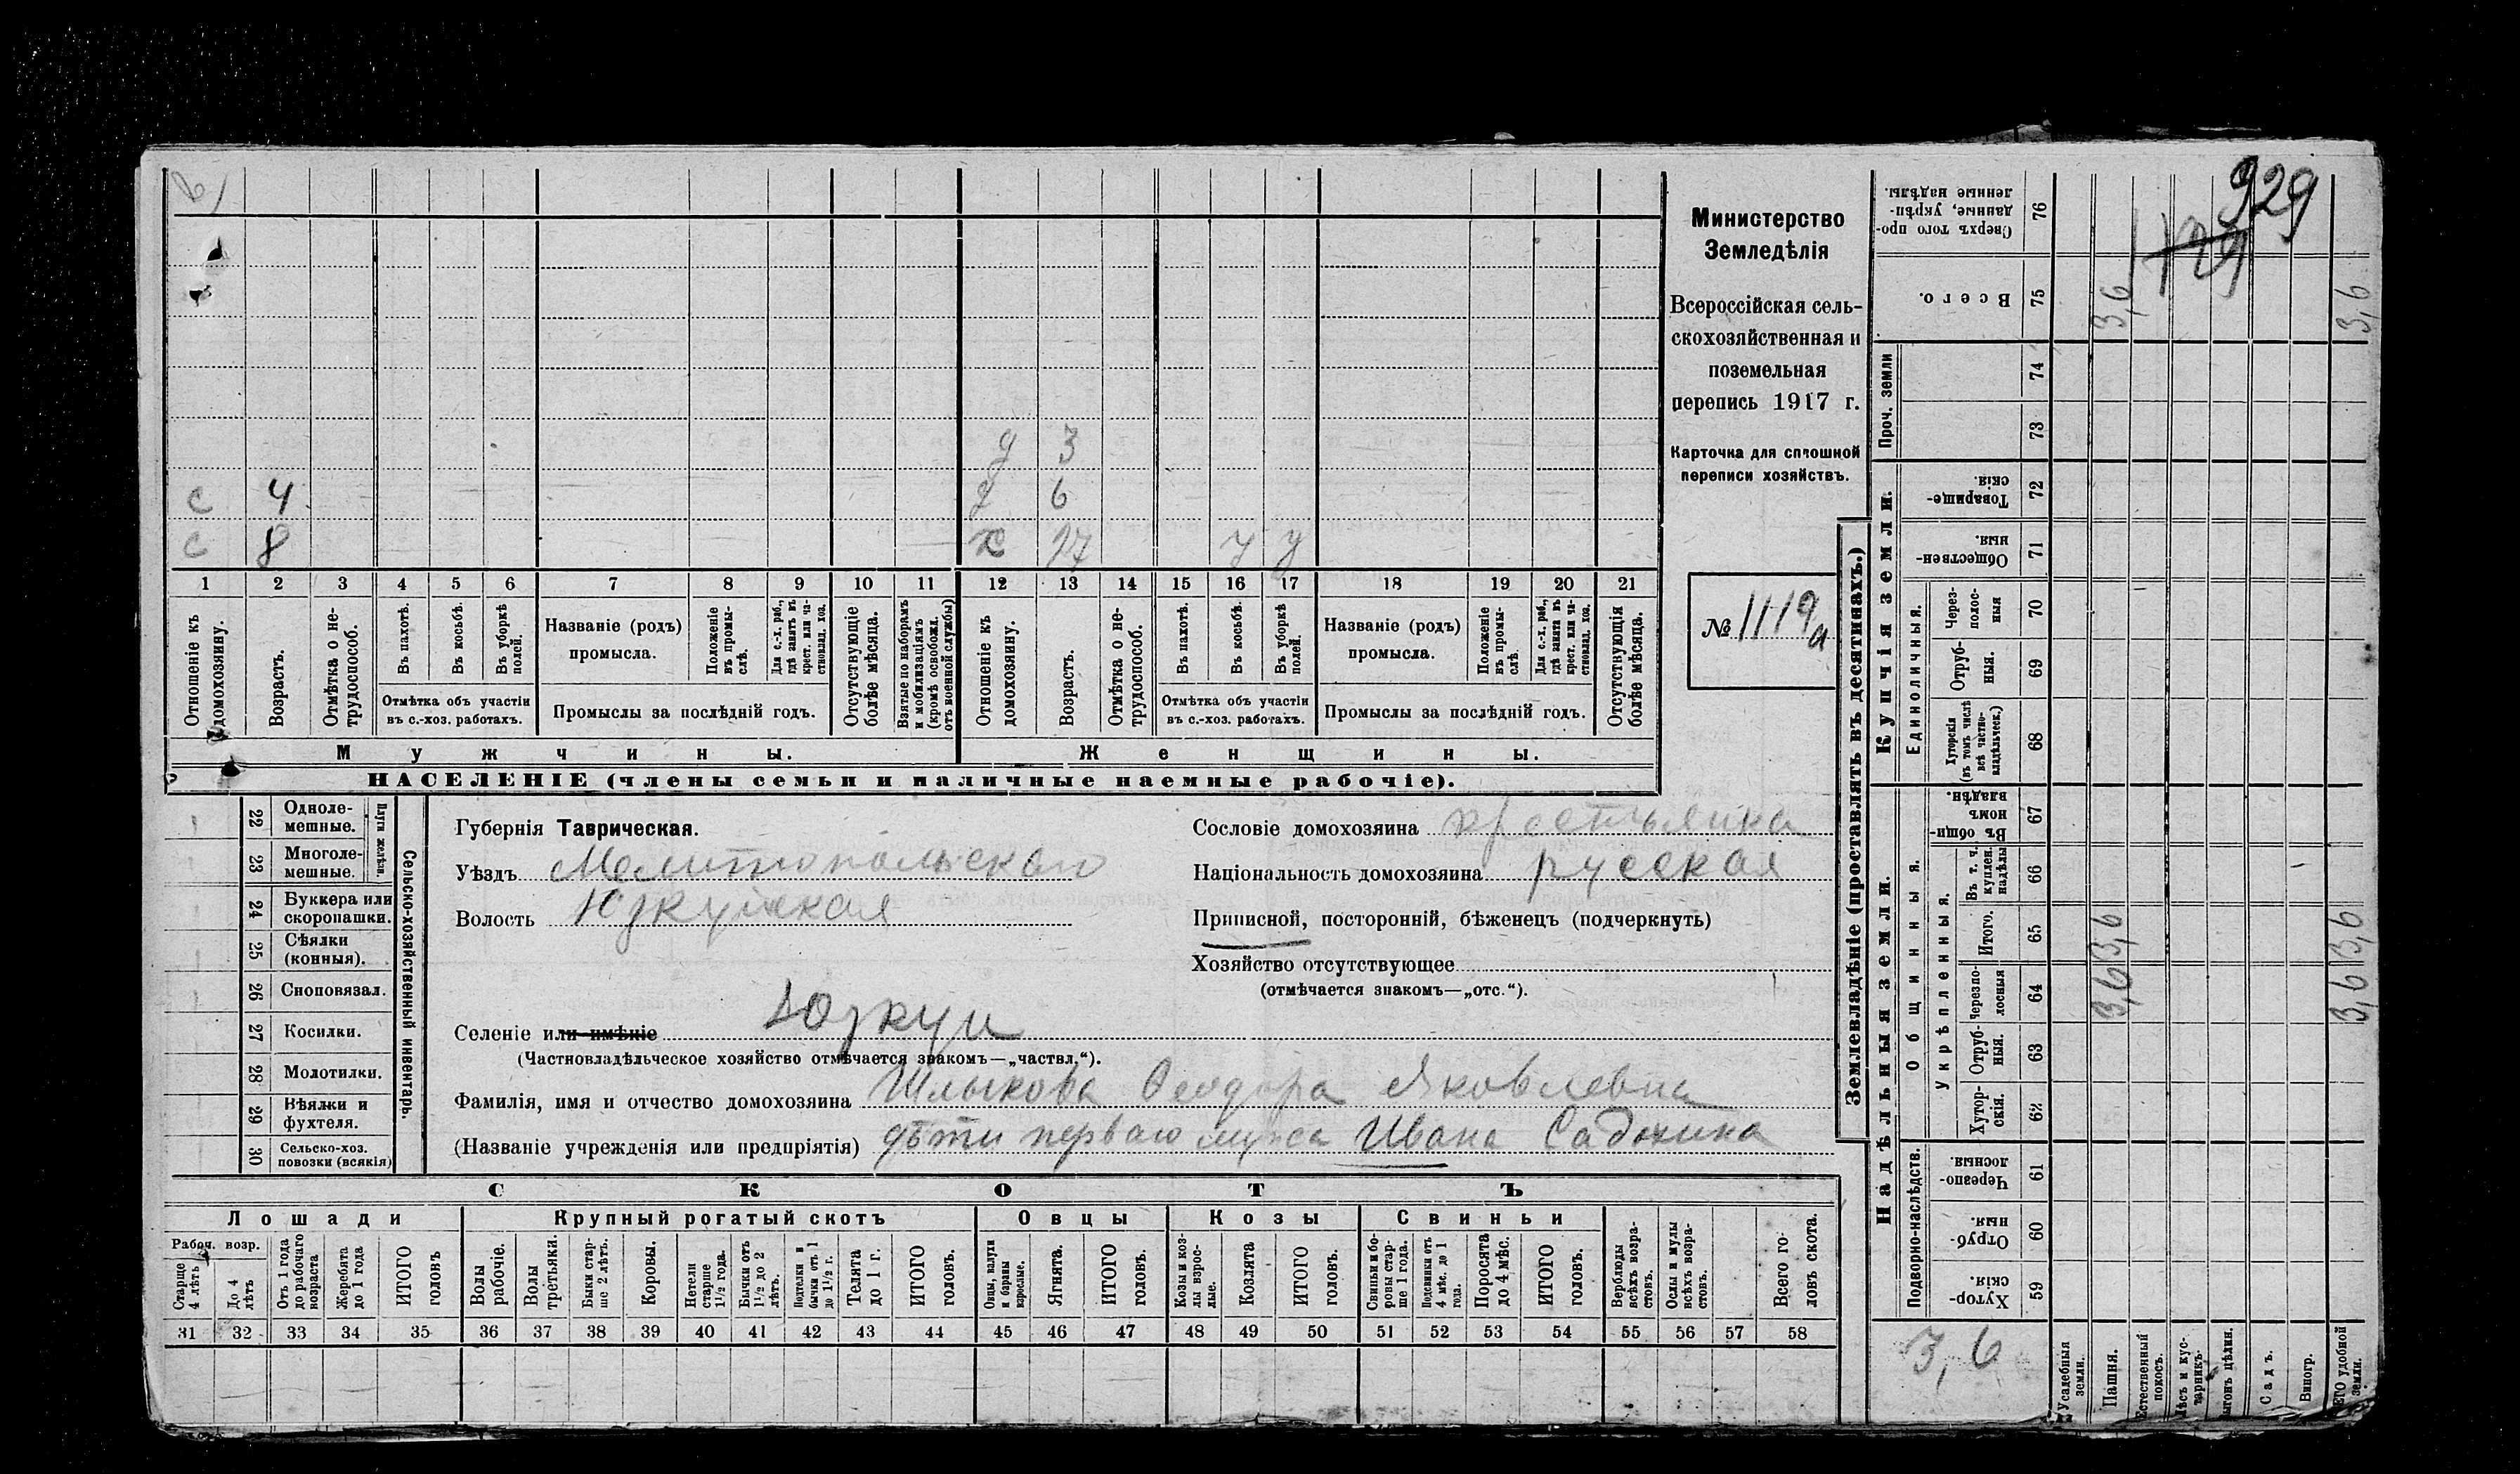 в)
929
Министерство
Земледѣлія
Всероссійская сель-
скохозяйственная и
поземельная
перепись 1917 г.
Карточка для сплошной
переписи хозяйствъ.
№ 1119а
д 3
с 4 д 6
с 8 х 27 у у
1 2 3 4 5 6 7 8 9 10 11 12 13 14 15 16 17 18 19 20 21
Отношеніе къ домохозяину.
Возрастъ.
Отмѣтка о не-трудоспособ.
Въ пахотѣ.
Въ косьбѣ.
Въ уборкѣ полей.
Отмѣтка объ участіи
въ с.-хоз. работахъ.
Названіе (родъ)
промысла.
Положеніе въ промы-слѣ.
Для с.-х. раб., гдѣ занятъ въ крест. или ча-ствовлад. хоз.
Промыслы за послѣдній годъ.
Отсутствующіе болѣе мѣсяца.
Взятые по наборамъ и мобилизаціямъ (кромѣ освобожд. отъ военной службы)
Отношеніе къ домохозяину.
Возрастъ.
Отмѣтка о не-трудоспособ.
Въ пахотѣ.
Въ косьбѣ.
Въ уборкѣ полей.
Отмѣтка объ участіи
въ с.-хоз. работахъ.
Названіе (родъ)
промысла.
Положеніе въ промы-слѣ.
Для с.-х. раб., гдѣ занята въ крест. или ча-ствовлад. хоз.
Промыслы за послѣдній годъ.
Отсутствующія болѣе мѣсяца.
Мужчины.
Женщины.
НАСЕЛЕНІЕ (члены семьи и наличные наемные рабочіе).
22 Одноле-мешные.
23 Многоле-мешные.
Плуги желѣзн.
24 Буккера или скоропашки.
25 Сѣялки (конныя).
26 Сноповязал.
27 Косилки.
28 Молотилки.
29 Вѣялки и фухтеля.
30 Сельско-хоз. повозки (всякія)
Сельско-хозяйственный инвентарь.
Губернія Таврическая.
Уѣздъ Мелитопольскаго
Волость Юзкуйская
Сословіе домохозяина крестьянка
Національность домохозяина русская
Приписной, посторонній, бѣженецъ (подчеркнуть)
Хозяйство отсутствующее
(отмѣчается знакомъ—„отс.“).
Селеніе или имѣніе Юзкуи
(Частновладѣльческое хозяйство отмѣчается знакомъ—„частвл.“).
Фамилія, имя и отчество домохозяина Шлыкова Феодора Яковлевна
(Названіе учрежденія или предпріятія) дѣти перваго мужа Ивана Садокина
СКОТЪ
Лошади
Крупный рогатый скотъ
Овцы
Козы
Свиньи
Рабоч. возр.
Старше 4 лѣтъ
До 4 лѣтъ
Отъ 1 года до рабочаго возраста
Жеребята до 1 года
ИТОГО головъ
Волы рабочіе.
Волы третьяки.
Быки стар-ше 2 лѣтъ.
Коровы.
Нетели старше 1½ года.
Бычки отъ 1½ до 2 лѣтъ.
Подтелки и бычки отъ 1 до 1½ г.
Телята до 1 г.
ИТОГО головъ.
Овцы, валухи и бараны взрослые.
Ягнята.
ИТОГО головъ.
Козы и коз-лы взрос-лые.
Козлята
ИТОГО головъ.
Свиньи и бо-ровы стар-ше 1 года.
Подсвинки отъ 4 мѣс. до 1 года.
Поросята до 4 мѣс.
ИТОГО головъ.
Верблюды всѣхъ возра-стовъ.
Ослы и мулы всѣхъ возра-стовъ.
Всего го-ловъ скота.
31 32 33 34 35 36 37 38 39 40 41 42 43 44 45 46 47 48 49 50 51 52 53 54 55 56 57 58
Землевладѣніе (проставлять въ десятинахъ.)
Сверхъ того про-данные, укрѣп-ленные надѣлы. 76
Всего. 75 3,6 3,6
Проч. земли 74
73
Купчія земли.
Товарище-скія. 72
Обществен-ныя. 71
Единоличныя.
Черезполос-ныя 70
Отруб-ныя. 69
Хуторскія (въ томъ числѣ всѣ частно-владѣльческ.) 68
Надѣльныя земли.
Общинныя.
Въ общи-номъ владѣн. 67
Укрѣпленныя.
Въ т. ч. куплен. надѣлы 66
Итого. 65 3,6 3,6
Черезпо-лосныя 64 3,6 3,6
Отруб-ныя. 63
Хутор-скія. 62
Подворно-наслѣдств.
Черезпо-лосныя. 61
Отруб-ныя. 60
Хутор-скія. 59
3,6
Усадебныя земли.
Пашня.
Естественный покосъ.
Лѣсъ и кус-тарникъ.
Выгонъ цѣлин.
Садъ.
Виногр.
ИТОГО удобной земли.